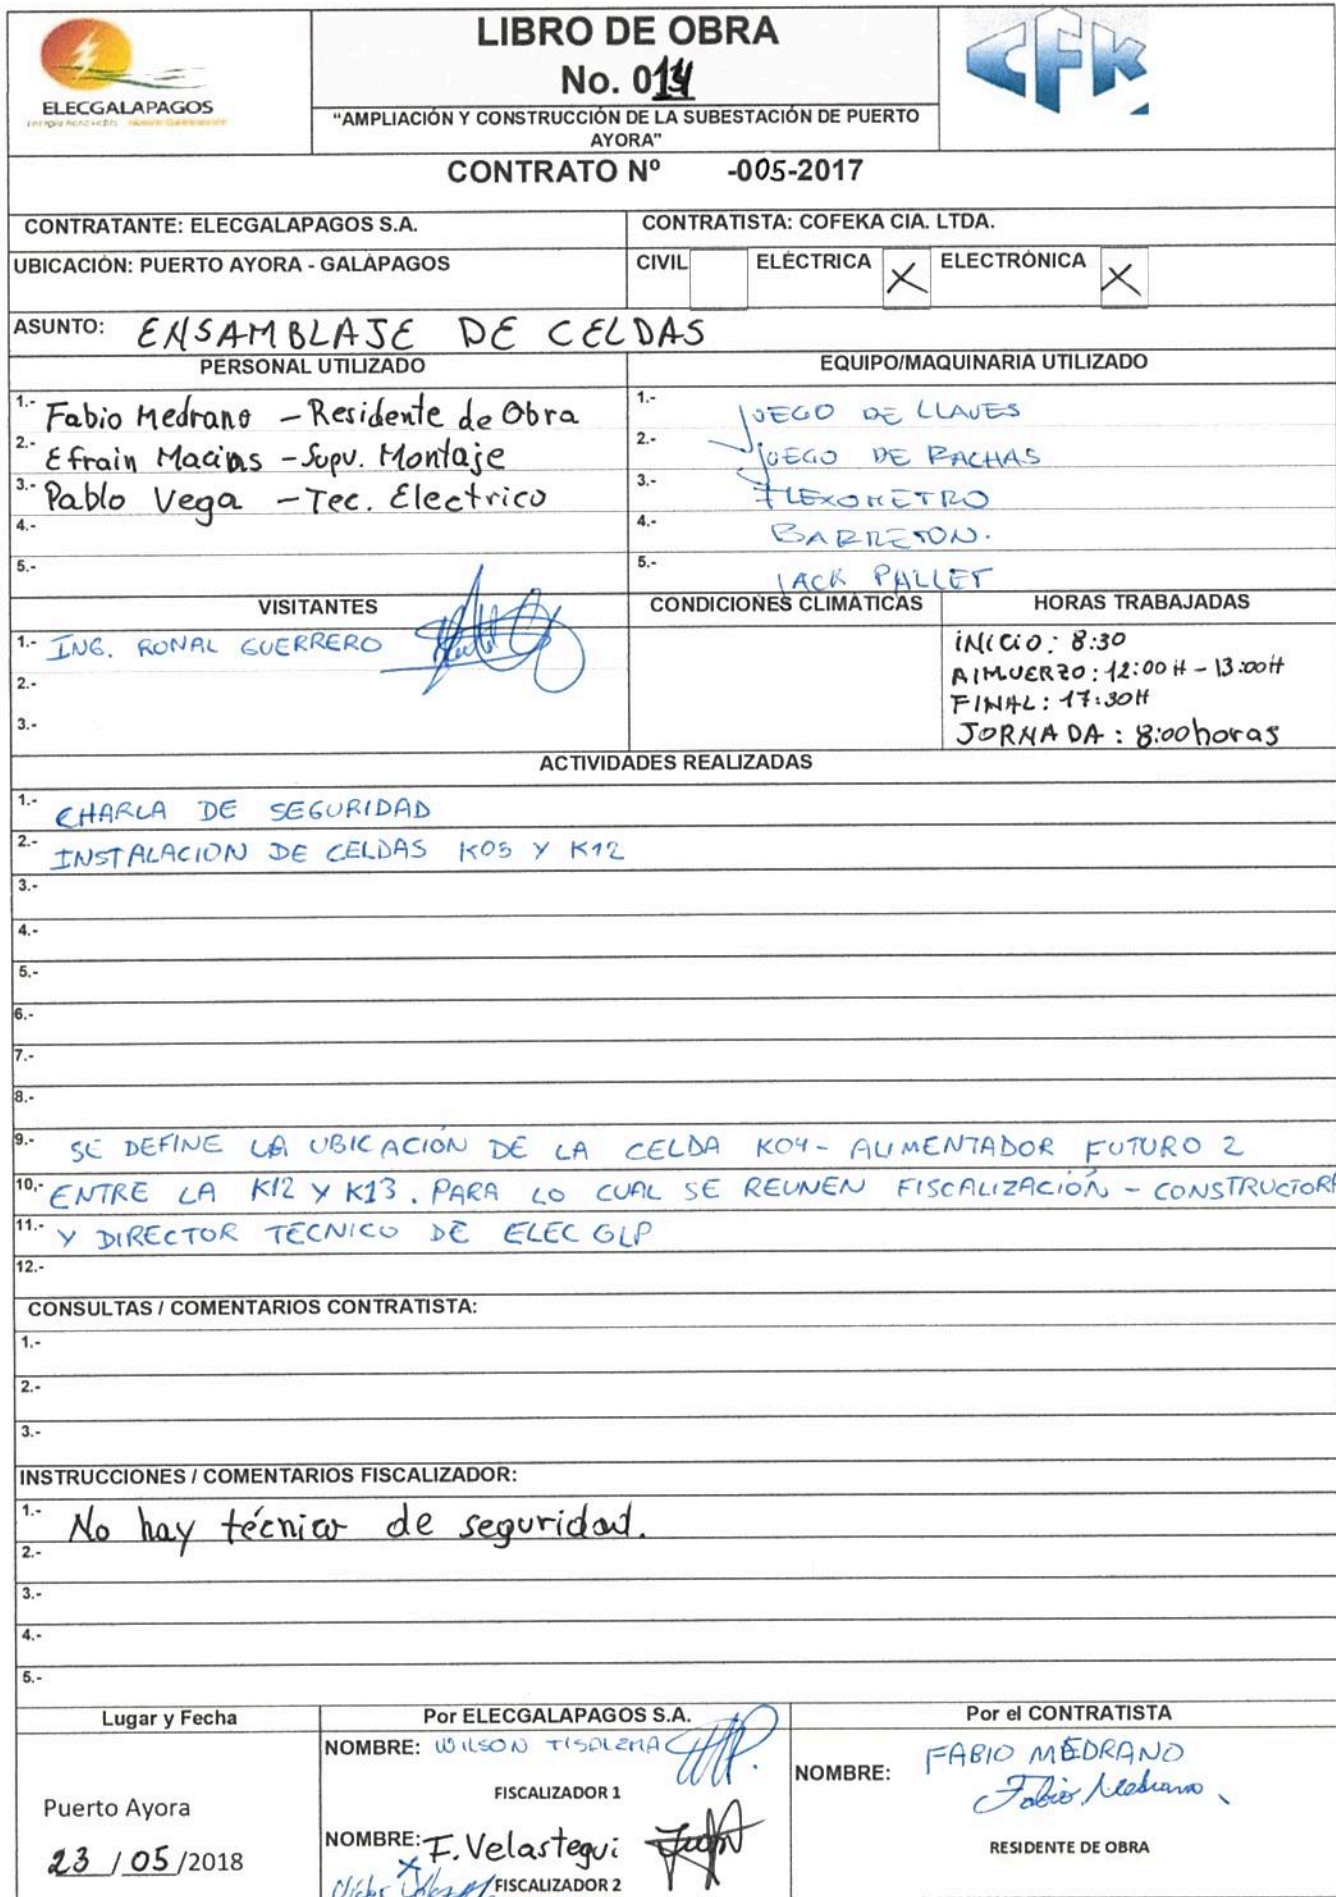 ELECGALAPAGOS
LIBRO DE OBRA
No. 014
"AMPLIACIÓN Y CONSTRUCCIÓN DE LA SUBESTACIÓN DE PUERTO
AYORA"
CFK
CONTRATO Nº -005-2017
CONTRATANTE: ELECGALAPAGOS S.A.
CONTRATISTA: COFEKA CIA. LTDA.
UBICACIÓN: PUERTO AYORA - GALÁPAGOS
CIVIL ELÉCTRICA X ELECTRÓNICA X
ASUNTO: ENSAMBLAJE DE CELDAS
PERSONAL UTILIZADO
EQUIPO/MAQUINARIA UTILIZADO
1.- Fabio Medrano - Residente de Obra
2.- Efrain Macias - Supv. Montaje
3.- Pablo Vega - Tec. Electrico
4.-
5.-
1.- JUEGO DE LLAVES
2.- JUEGO DE RACHAS
3.- FLEXOMETRO
4.- BARRETON.
5.- JACK PALLET
VISITANTES
CONDICIONES CLIMÁTICAS
HORAS TRABAJADAS
1.- ING. RONAL GUERRERO
2.-
3.-
INICIO: 8:30
AlMUERZO: 12:00 H - 13:00H
FINAL: 17:30H
JORNADA: 8:00 horas
ACTIVIDADES REALIZADAS
1.- CHARLA DE SEGURIDAD
2.- INSTALACION DE CELDAS K05 Y K12
3.-
4.-
5.-
6.-
7.-
8.-
9.- SE DEFINE LA UBICACIÓN DE LA CELDA K04- ALIMENTADOR FUTURO 2
10,- ENTRE LA K12 Y K13. PARA LO CUAL SE REUNEN FISCALIZACIÓN - CONSTRUCTORA
11.- Y DIRECTOR TECNICO DE ELEC GLP
12.-
CONSULTAS / COMENTARIOS CONTRATISTA:
1.-
2.-
3.-
INSTRUCCIONES / COMENTARIOS FISCALIZADOR:
1.- No hay técnico de seguridad.
2.-
3.-
4.-
5.-
Lugar y Fecha
Por ELECGALAPAGOS S.A.
Por el CONTRATISTA
Puerto Ayora
23 / 05 /2018
NOMBRE: WILSON TISALEMA
FISCALIZADOR 1
NOMBRE: F. Velastegui
FISCALIZADOR 2
NOMBRE: FABIO MEDRANO
Fabio Medrano
RESIDENTE DE OBRA